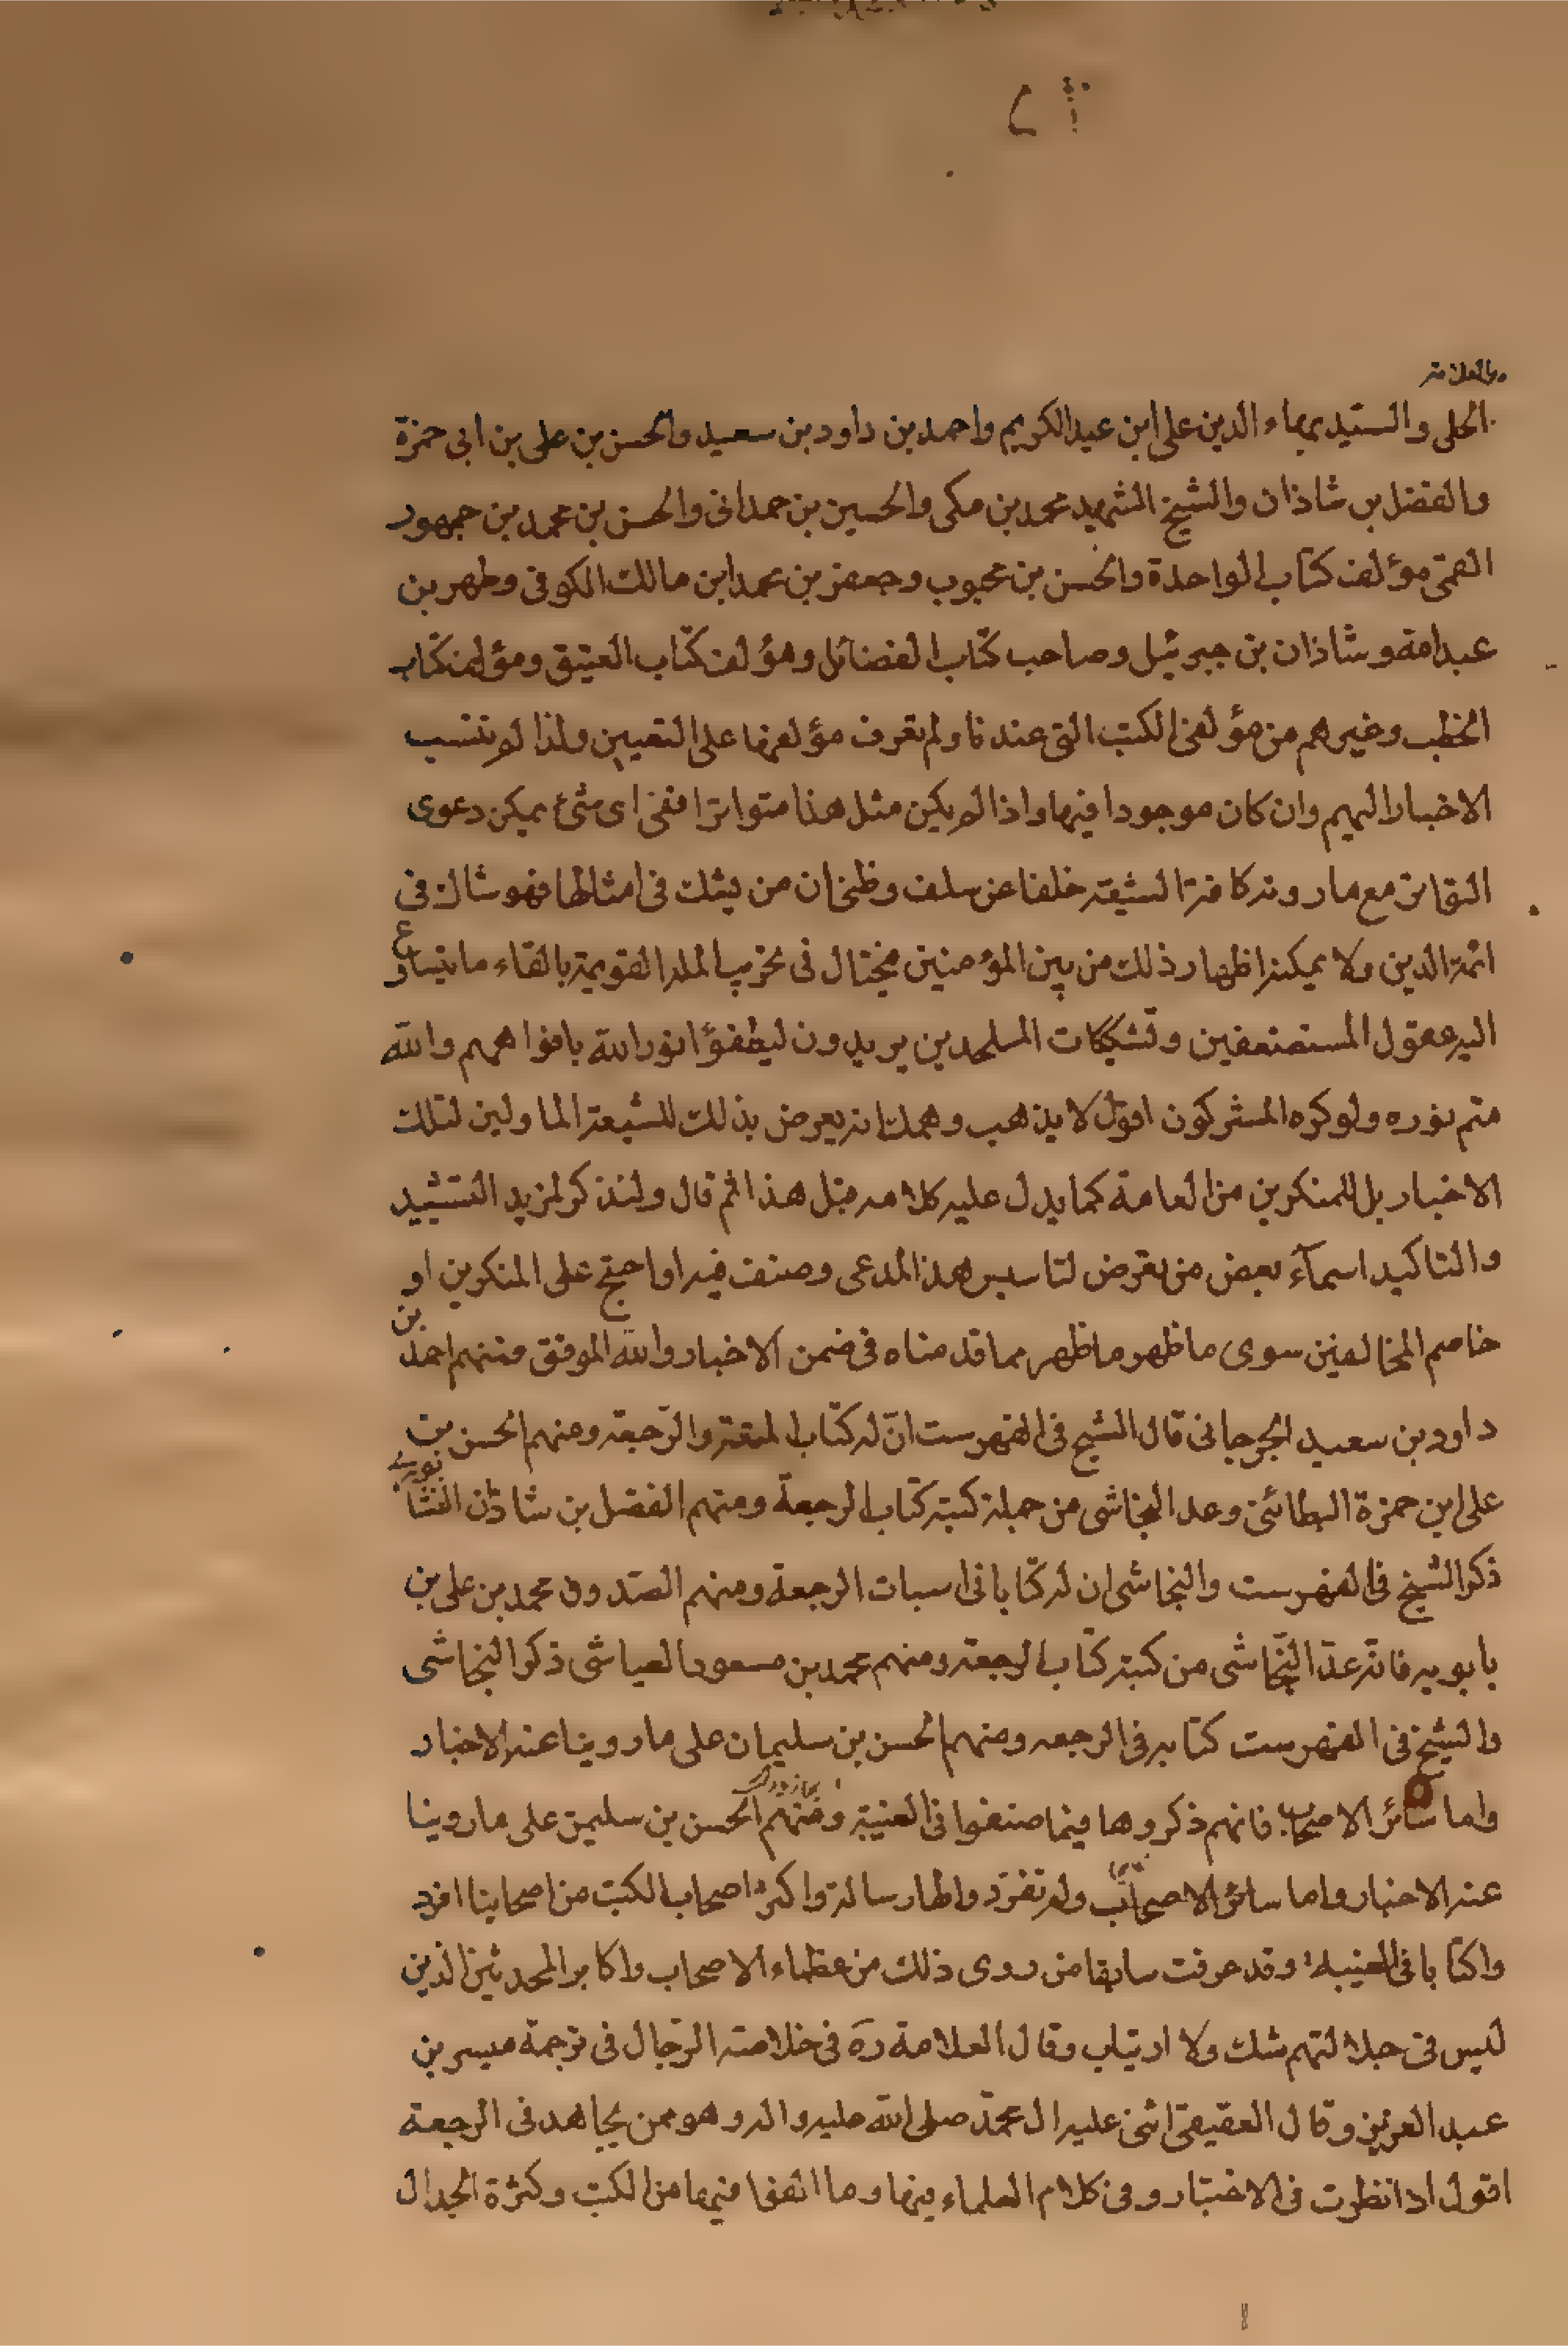 والعلامة
الحلى والسيد بهاء الدين على ابن عبد الكريم واحمد بن داود بن سعيد والحسن بن على بن ابى حمزة
والفضل بن شاذان والشيخ الشهيد محمد بن مكى والحسين بن حمدانى والحسن بن محمد بن جمهور
القمى مؤلف كتاب الواحدة والحسن بن محبوب وجعفر بن محمد ابن مالك الكوفى وطهر بن
عبدامة وشاذان بن جبرئيل وصاحب كتاب الفضائل ومؤلف كتاب العتيق ومؤلف كتاب
الخطب وغيرهم من مؤلفى الكتب التى عندنا ولم نعرف مؤلفها على التعيين ولذا لم ننسب
الاخبار اليهم وان كان موجودا فيها واذا لم يكن مثل هذا متواترا ففى اى شئ يمكن دعوى
التواتر مع ما روته كافة الشيعة خلفا عن سلف وظنى ان من يشك فى امثالها فهو شاك فى
ائمة الدين ولا يمكنه اظهار ذلك من بين المؤمنين فيحتال فى تخريب الملة القويمة بالقاء ما يتسارع
اليه عقول المستضعفين وتشكيكات الملحدين يريدون ليطفؤا نور الله بافواههم والله
متم نوره ولو كره المشركون اقول لا يذهب وهمك انه يعرض بذلك للشيعة الماولين لتلك
الاخبار بل للمنكرين من العامة كما يدل عليه كلامه قبل هذا ثم قال ولنذكر لمزيد التشييد
والتاكيد اسمآء بعض من تعرض لتاسيس هذا المدعى وصنف فيه او احتج على المنكرين او
خاصم المخالفين سوى ما ظهر ما ظهر مما قدمناه فى ضمن الاخبار والله الموفق فمنهم احمد بن
داود بن سعيد الجرجانى قال الشيخ فى الفهرست انّ له كتاب المتعة والرّجعة ومنهم الحسن بن
على ابن حمزة البطائنى وعد النجاشى من جملة كتبه كتاب الرجعة ومنهم الفضل بن شاذان النشابورى
ذكر الشيخ فى الفهرست والنجاشى ان له كتابا فى اسبات الرجعة ومنهم الصدوق محمد بن على بن
بابويه فانّه عدّ النّجاشى من كتبه كتاب الرجعة ومنهم محمد بن مسعود العياشى ذكر النجاشى
والشيخ فى الفهرست كتابه فى الرجعه ومنهم الحسن بن سليمان على ما روينا عنه الاخبار
واما سائر الاصحاب فانهم ذكروها فيما صنفوا فى الغيبة ومنهم الحسن بن سليمن على ما روينا
عنه الاخبار واما سائر الاصحاب ولم تفرّد واطار سالة واكثر اصحاب الكتب من اصحابنا افرد
واكتابا فى الغيبه وقد عرفت سابقا من روى ذلك من عظماء الاصحاب واكابر المحدثين الذين
ليس فى جلالتهم شك ولا ارتياب وقال العلامة ره فى خلاصته الرّجال فى ترجمة ميسر بن
عبد العزيز وقال العقيقى اثنى عليه ال محمّد صلى الله عليه واله وهو ممن يجاهد فى الرجعة
اقول اذا نظرت فى الاخبار وفى كلام العلماء فيها وما الفوا فيها من الكتب وكثرة الجدال